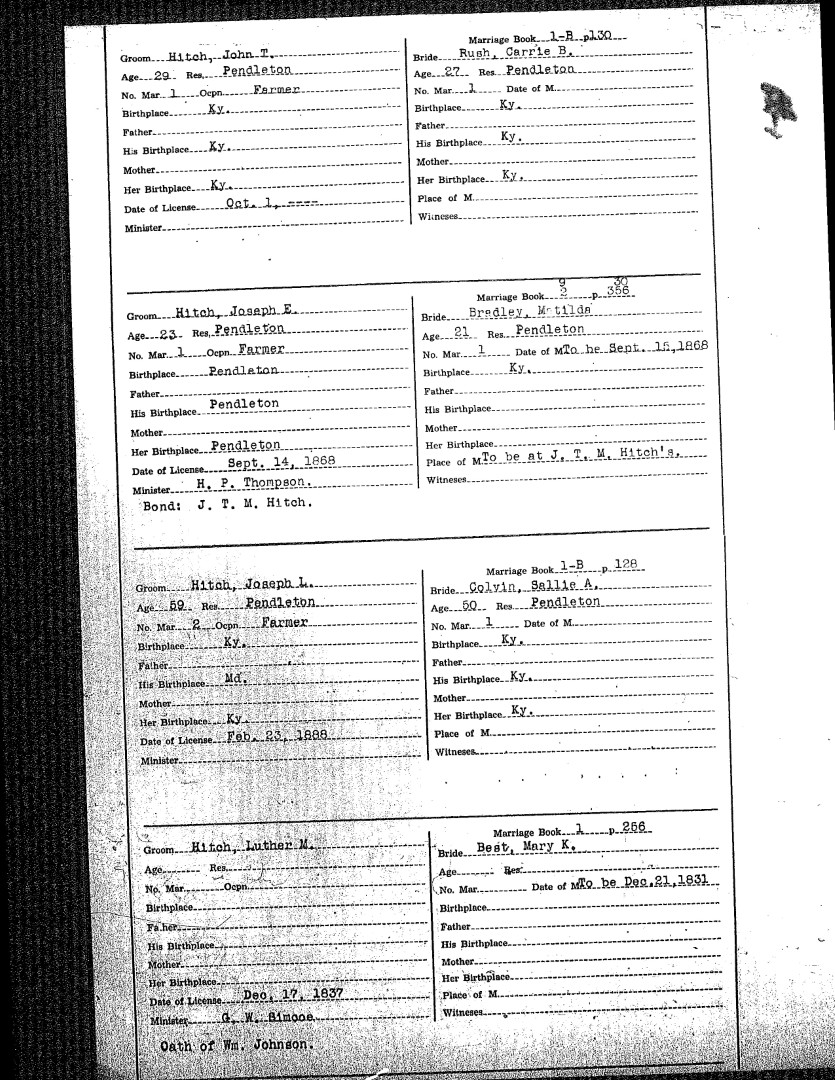 Marriage Book 1-B p130
Groom Hitch, John T. Bride Rush, Carrie B.
Age 29 Res. Pendleton Age 27 Res Pendleton
No. Mar 1 Ocpn. Farmer No. Mar. 1 Date of M.
Birthplace Ky. Birthplace Ky.
Father Father
His Birthplace Ky. His Birthplace Ky.
Mother Mother
Her Birthplace Ky. Her Birthplace Ky.
Date of License Oct. 1, ---- Place of M.
Minister Witneses
9 30
Marriage Book 2 p. 356
Groom Hitch, Joseph E. Bride Bradley, Matilda
Age 23 Res. Pendleton Age 21 Res. Pendleton
No. Mar. 1 Ocpn. Farmer No. Mar 1 Date of M To be Sept. 15,1868
Birthplace Pendleton Birthplace Ky.
Father Father
His Birthplace Pendleton His Birthplace
Mother Mother
Her Birthplace Pendleton Her Birthplace
Date of License Sept. 14, 1868 Place of M. To be at J. T. M. Hitch's.
Minister H. P. Thompson. Witneses
Bond: J. T. M. Hitch.
Marriage Book 1-B p. 128
Groom Hitch, Joseph L. Bride Colvin, Sallie A.
Age 59 Res. Pendleton Age 50 Res Pendleton
No. Mar. 2 Ocpn. Farmer No. Mar. 1 Date of M.
Birthplace Ky. Birthplace Ky.
Father Father
His Birthplace Md. His Birthplace Ky.
Mother Mother
Her Birthplace Ky Her Birthplace Ky.
Date of License Feb. 23, 1888 Place of M.
Minister Witneses
Marriage Book 1 p. 256
Groom Hitch, Luther M. Bride Best, Mary K.
Age Res. Age Res.
No. Mar. Ocpn. No. Mar. Date of M To be Dec.21,1831
Birthplace Birthplace
Father Father
His Birthplace His Birthplace
Mother Mother
Her Birthplace Her Birthplace
Date of License Dec. 17, 1837 Place of M.
Minister G. W. Witneses
Oath of Wm. Johnson.